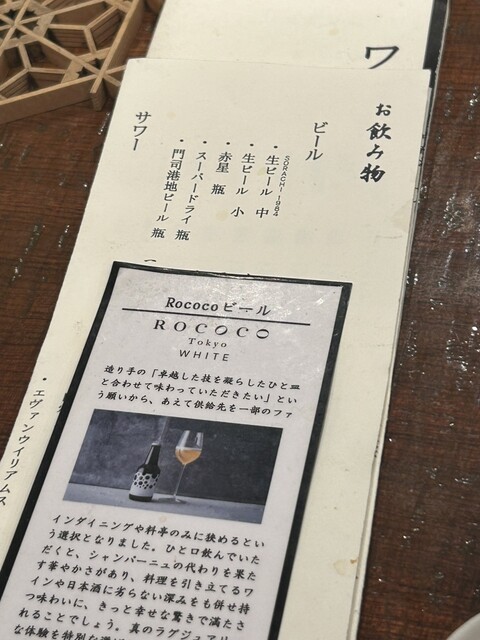 ワ
お飲み物
ビール
SORACHI 1984
・生ビール 中
・生ビール 小
・赤星 瓶
・スーパードライ 瓶
・門司港地ビール 瓶
サワー
・エヴァンウイリアムス
Rococoビール
ROCOCO
Tokyo
WHITE
造り手の「卓越した技を凝らしたひと皿
と合わせて味わっていただきたい」とい
う願いから、あえて供給先を一部のファ
インダイニングや料亭のみに狭めるとい
う選択となりました。ひと口飲んでいた
だくと、シャンパーニュの代わりを果た
す華やかさがあり、料理を引き立てるワ
インや日本酒に劣らない深みをも併せ持
つ味わいに、きっと幸せな驚きで満たさ
れることでしょう。真のラグジュアリ
な体験を特別な